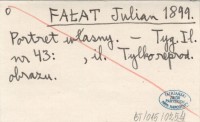 FAŁAT Julian 1899.
Portret własny. – Tyg. Il.
nr 43: , il. Tylko reprod.
obrazu.